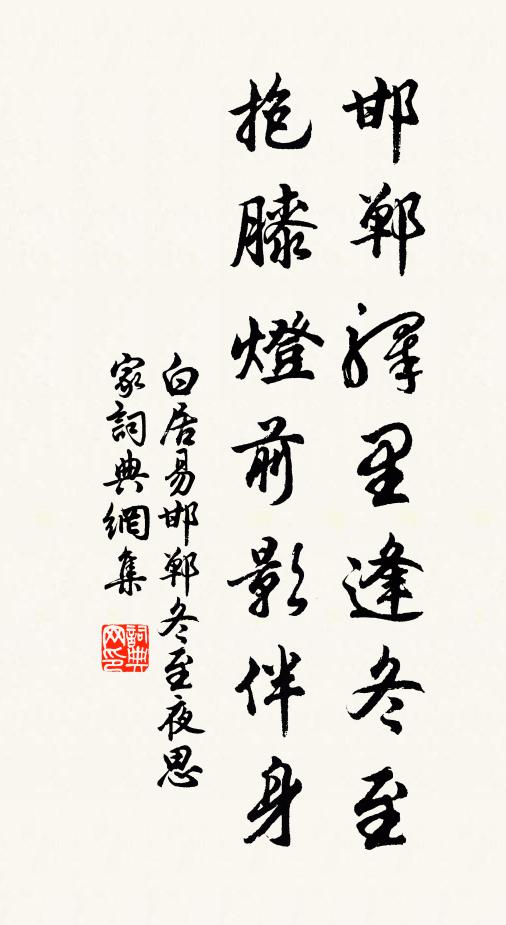 邯鄲驛里逢冬至
抱膝燈前影伴身
白居易邯鄲冬至夜思
家詞典網集
詞典网印